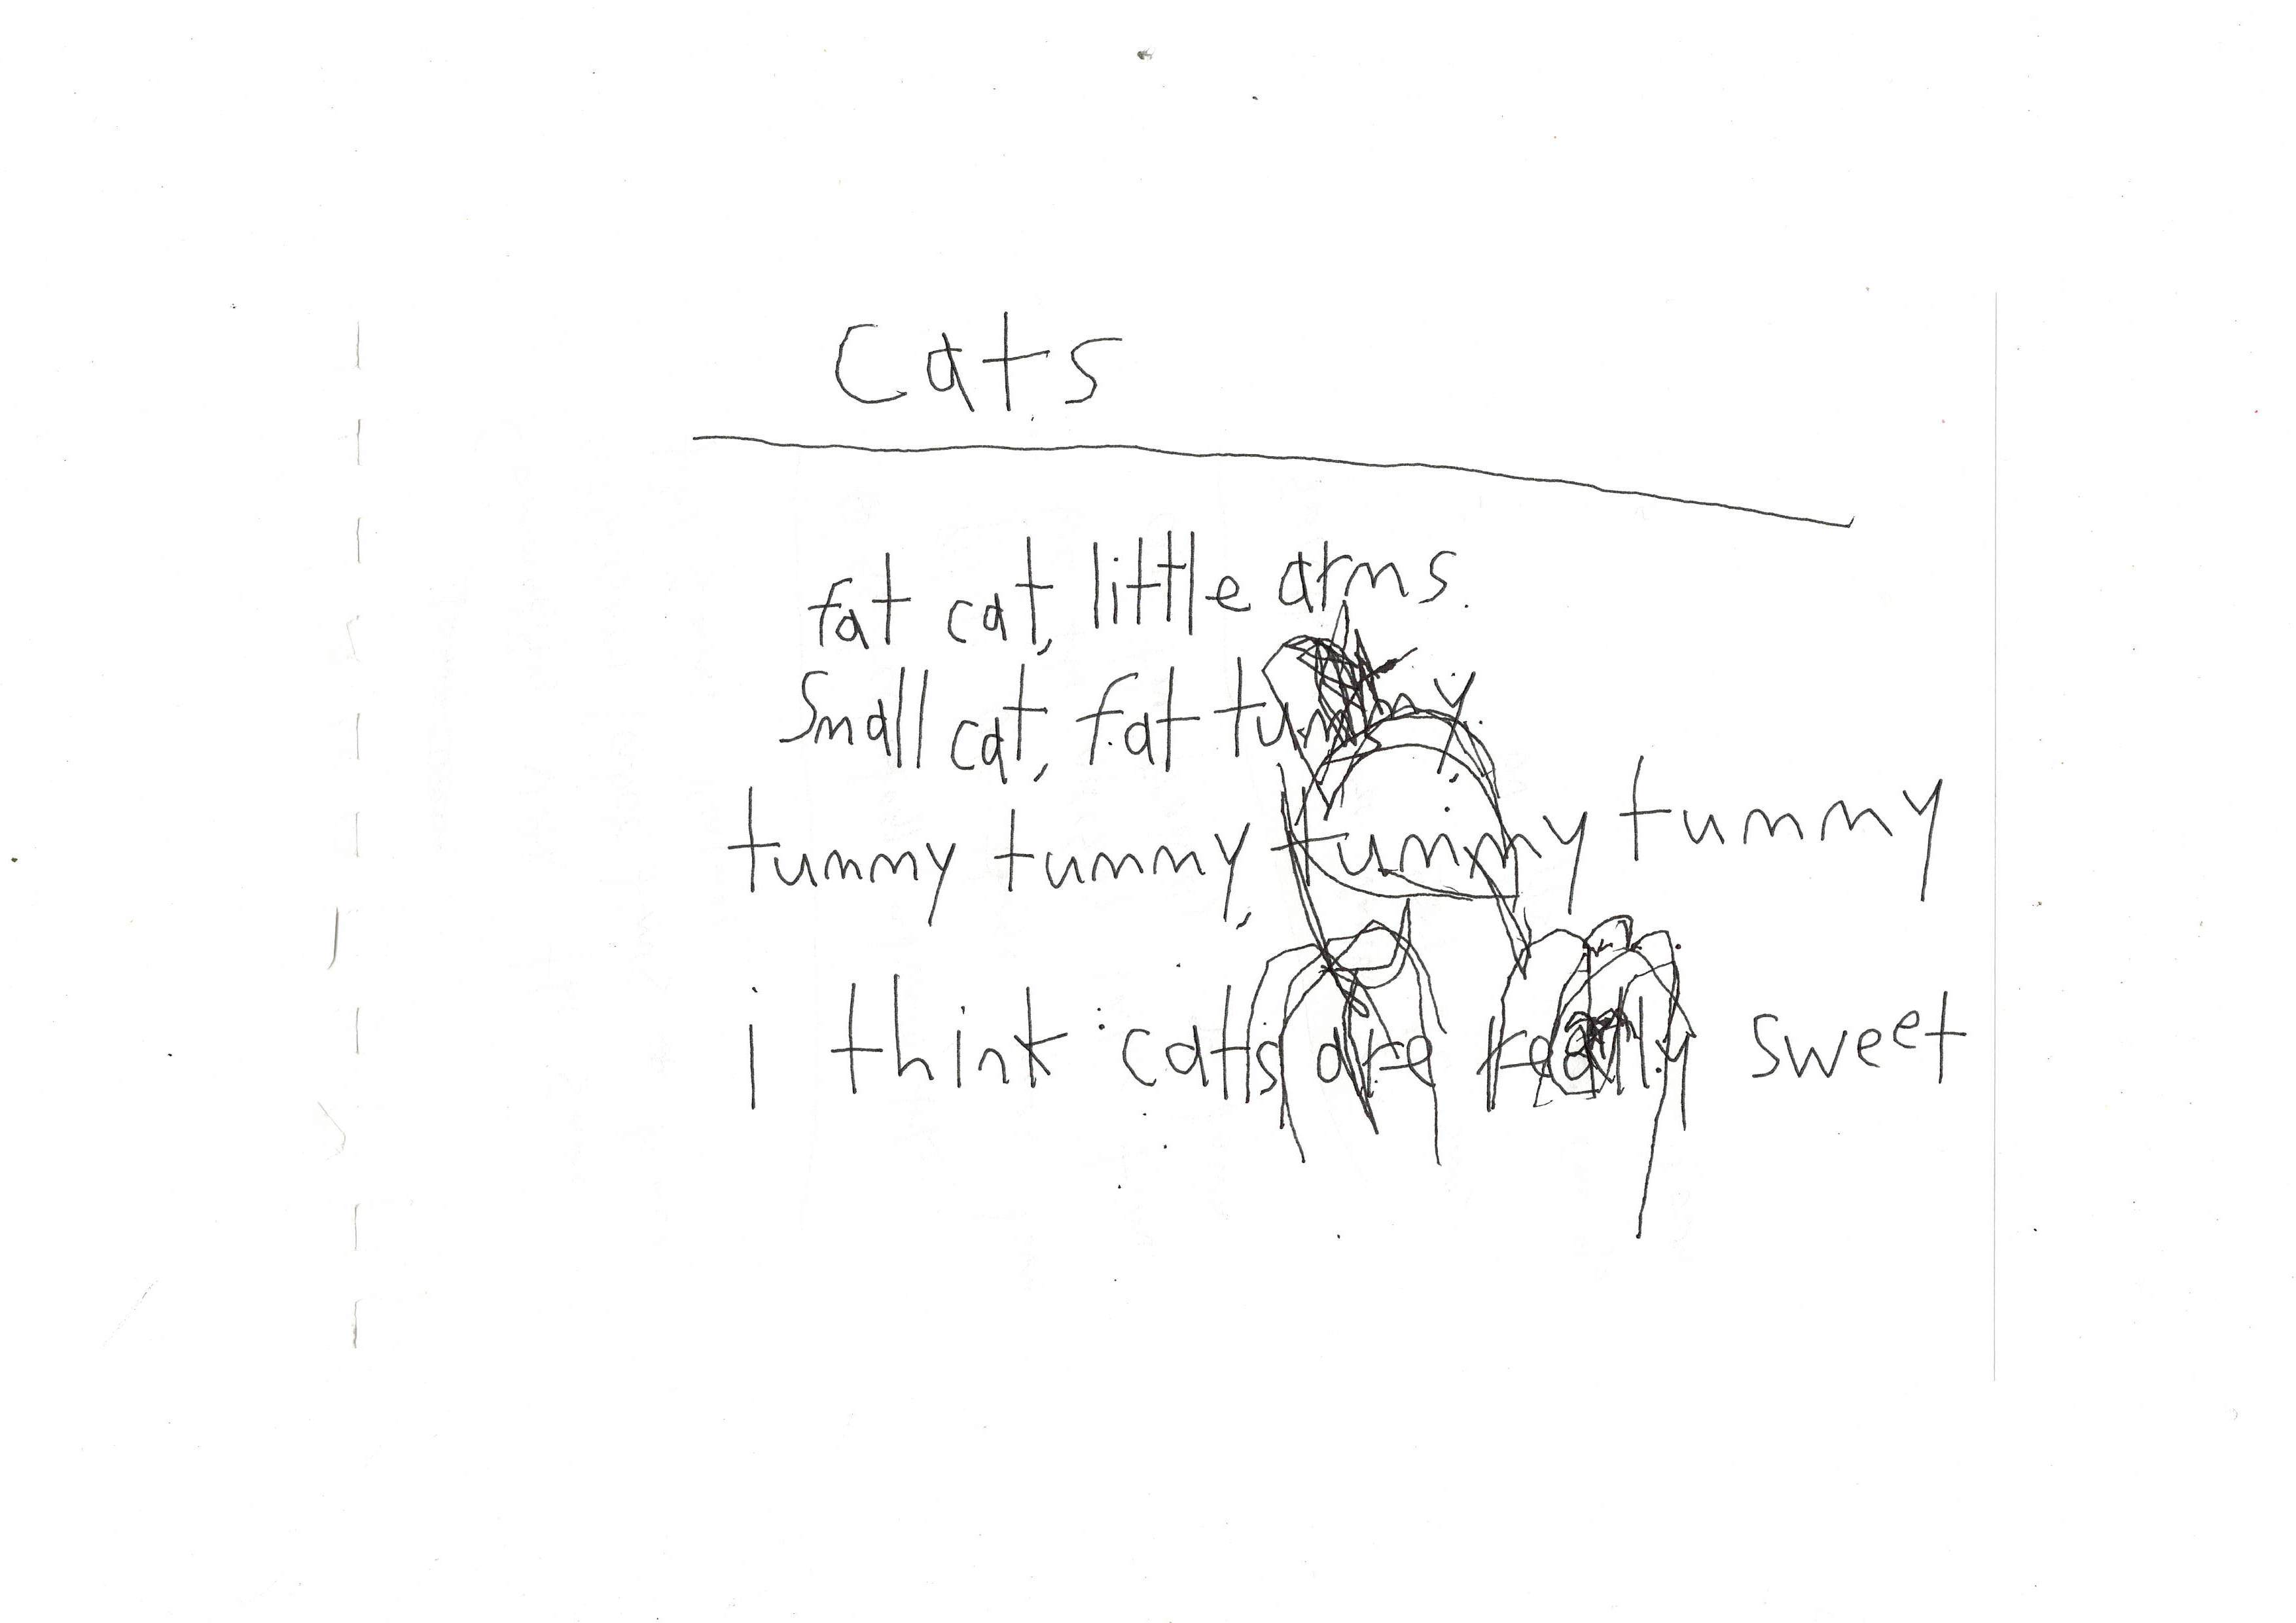 Cats
fat cat, little arms.
Small cat, fat tummy.
tummy tummy, tummy tummy
i think cats are really sweet